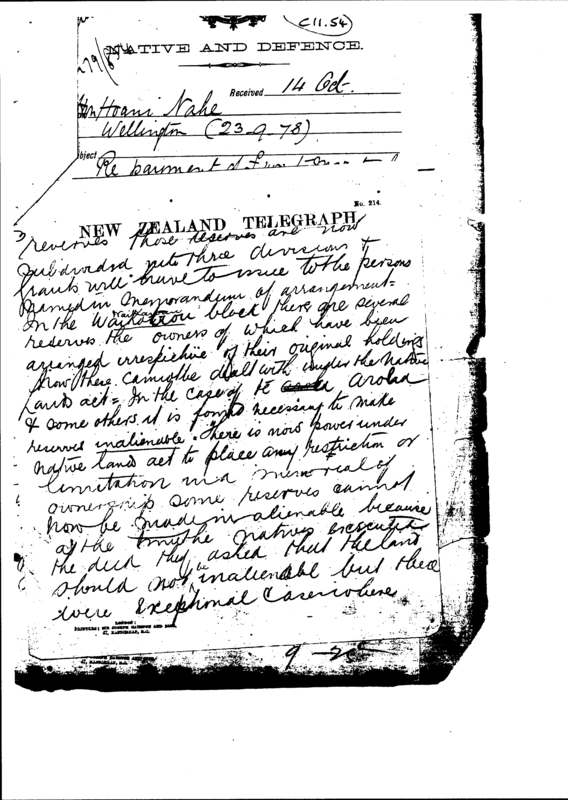 C11.54
NATIVE AND DEFENCE.
Received 14 Oct.
Hon Hoani Nahe
Wellington (23-9-78)
Re payment of
No. 214.
NEW ZEALAND TELEGRAPH.
reserves those reserves are now
subdivided into three divisions &
grants will have to issue to the persons
named in memorandum of arrangement =
In the block there are several
reserves the owners of which have been
arranged irrespective of their original holdings
now these cannot be dealt with under the Native
Lands act = In the case of Te Aroha
& some others it is found necessary to make
reserves inalienable. There is now power under
native land act to place any restriction or
limitation in a memorial of
ownership some reserves cannot
now be made inalienable because
at the time the natives executed
the deed they asked that the land
should not be inalienable but these
were exceptional cases where
LONDON:
PRINTERS; SIR JOSEPH CAUSTON AND SONS,
47, EASTCHEAP, E.C.
47, EASTCHEAP, E.C.